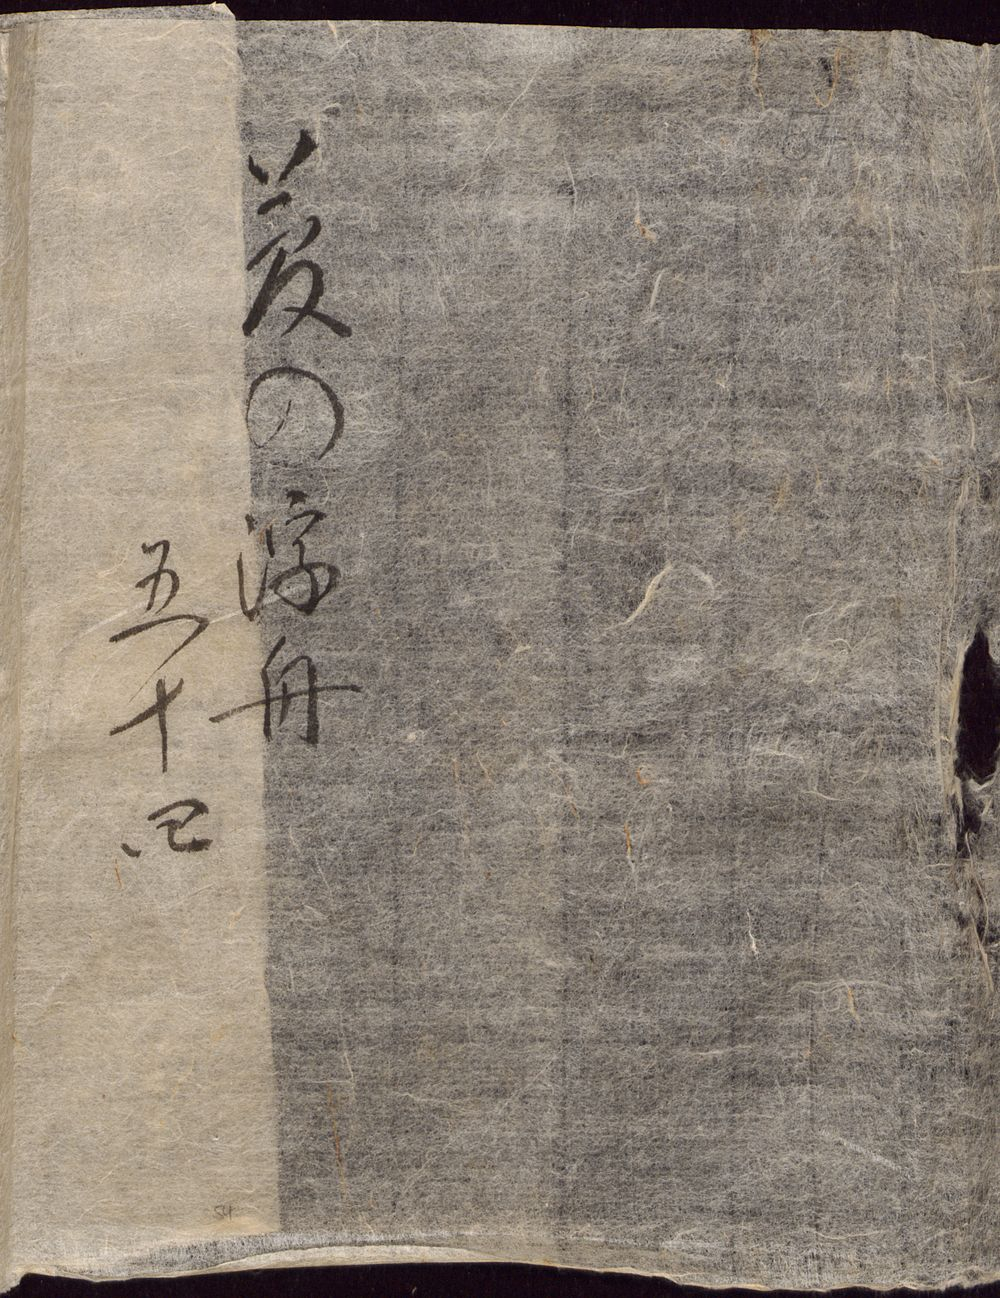 夢の浮舟
五十四
54